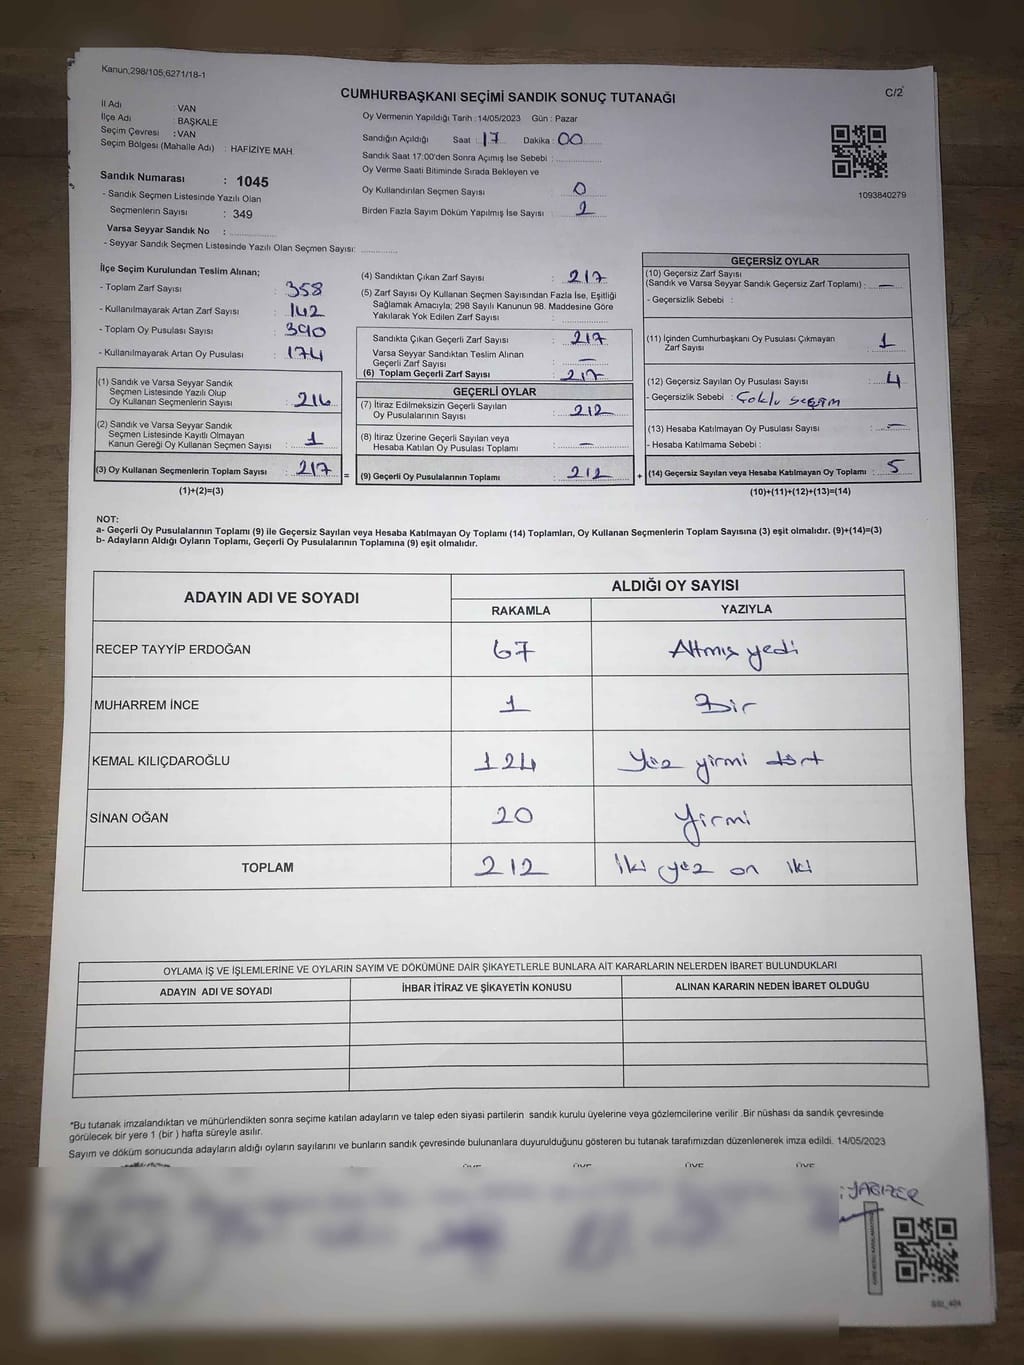 Kanun,298/105;6271/18-1
C/2
CUMHURBAŞKANI SEÇİMİ SANDIK SONUÇ TUTANAĞI
İl Adı : VAN
İlçe Adı : BAŞKALE
Seçim Çevresi : VAN
Seçim Bölgesi (Mahalle Adı) : HAFİZİYE MAH.
Sandık Numarası : 1045
- Sandık Seçmen Listesinde Yazılı Olan
Seçmenlerin Sayısı : 349
Varsa Seyyar Sandık No :
- Seyyar Sandık Seçmen Listesinde Yazılı Olan Seçmen Sayısı:
Oy Vermenin Yapıldığı Tarih : 14/05/2023 Gün : Pazar
Sandığın Açıldığı Saat : 17 Dakika : 00
Sandık Saat 17:00'den Sonra Açımış İse Sebebi :
Oy Verme Saati Bitiminde Sırada Bekleyen ve
Oy Kullandırılan Seçmen Sayısı : 0
Birden Fazla Sayım Döküm Yapılmış İse Sayısı : 2
1093840279
İlçe Seçim Kurulundan Teslim Alınan;
- Toplam Zarf Sayısı : 358
- Kullanılmayarak Artan Zarf Sayısı : 142
- Toplam Oy Pusulası Sayısı : 390
- Kullanılmayarak Artan Oy Pusulası : 174
(1) Sandık ve Varsa Seyyar Sandık
Seçmen Listesinde Yazılı Olup
Oy Kullanan Seçmenlerin Sayısı : 216
(2) Sandık ve Varsa Seyyar Sandık
Seçmen Listesinde Kayıtlı Olmayan
Kanun Gereği Oy Kullanan Seçmen Sayısı : 1
(3) Oy Kullanan Seçmenlerin Toplam Sayısı : 217 =
(1)+(2)=(3)
(4) Sandıktan Çıkan Zarf Sayısı : 217
(5) Zarf Sayısı Oy Kullanan Seçmen Sayısından Fazla İse, Eşitliği
Sağlamak Amacıyla; 298 Sayılı Kanunun 98. Maddesine Göre
Yakılarak Yok Edilen Zarf Sayısı :
Sandıkta Çıkan Geçerli Zarf Sayısı : 217
Varsa Seyyar Sandıktan Teslim Alınan
Geçerli Zarf Sayısı : —
(6) Toplam Geçerli Zarf Sayısı : 217
GEÇERLİ OYLAR
(7) İtiraz Edilmeksizin Geçerli Sayılan
Oy Pusulalarının Sayısı : 212
(8) İtiraz Üzerine Geçerli Sayılan veya
Hesaba Katılan Oy Pusulası Toplamı : —
(9) Geçerli Oy Pusulalarının Toplamı : 212 +
GEÇERSİZ OYLAR
(10) Geçersiz Zarf Sayısı
(Sandık ve Varsa Seyyar Sandık Geçersiz Zarf Toplamı) : —
- Geçersizlik Sebebi :
(11) İçinden Cumhurbaşkanı Oy Pusulası Çıkmayan
Zarf Sayısı : 1
(12) Geçersiz Sayılan Oy Pusulası Sayısı : 4
- Geçersizlik Sebebi : Çoklu seçim
(13) Hesaba Katılmayan Oy Pusulası Sayısı : —
- Hesaba Katılmama Sebebi :
(14) Geçersiz Sayılan veya Hesaba Katılmayan Oy Toplamı : 5
(10)+(11)+(12)+(13)=(14)
NOT:
a- Geçerli Oy Pusulalarının Toplamı (9) ile Geçersiz Sayılan veya Hesaba Katılmayan Oy Toplamı (14) Toplamları, Oy Kullanan Seçmenlerin Toplam Sayısına (3) eşit olmalıdır. (9)+(14)=(3)
b- Adayların Aldığı Oyların Toplamı, Geçerli Oy Pusulalarının Toplamına (9) eşit olmalıdır.
ADAYIN ADI VE SOYADI
ALDIĞI OY SAYISI
RAKAMLA YAZIYLA
RECEP TAYYİP ERDOĞAN 67 Altmış yedi
MUHARREM İNCE 1 Bir
KEMAL KILIÇDAROĞLU 124 Yüz yirmi dört
SİNAN OĞAN 20 Yirmi
TOPLAM 212 İki yüz on iki
OYLAMA İŞ VE İŞLEMLERİNE VE OYLARIN SAYIM VE DÖKÜMÜNE DAİR ŞİKAYETLERLE BUNLARA AİT KARARLARIN NELERDEN İBARET BULUNDUKLARI
ADAYIN ADI VE SOYADI İHBAR İTİRAZ VE ŞİKAYETİN KONUSU ALINAN KARARIN NEDEN İBARET OLDUĞU
*Bu tutanak imzalandıktan ve mühürlendikten sonra seçime katılan adayların ve talep eden siyasi partilerin sandık kurulu üyelerine veya gözlemcilerine verilir .Bir nüshası da sandık çevresinde
görülecek bir yere 1 (bir ) hafta süreyle asılır.
Sayım ve döküm sonucunda adayların aldığı oyların sayılarını ve bunların sandık çevresinde bulunanlara duyurulduğunu gösteren bu tutanak tarafımızdan düzenlenerek imza edildi. 14/05/2023
ÜYE ÜYE ÜYE ÜYE